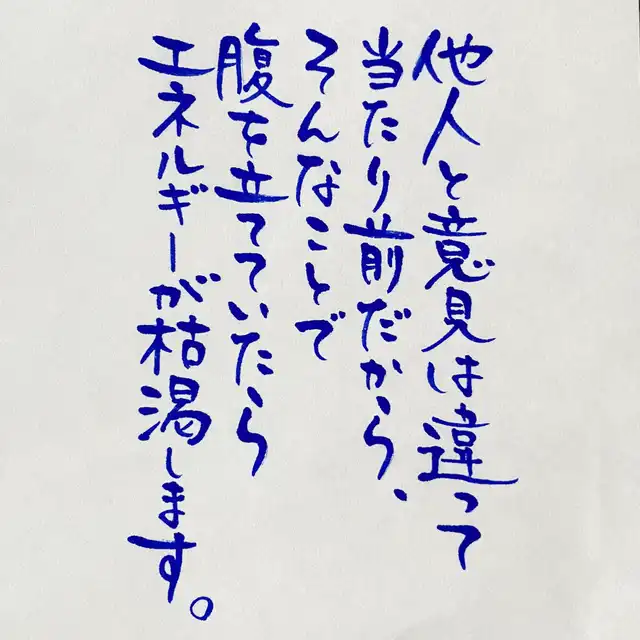 他人と意見は違って
当たり前だから、
そんなことで
腹を立てていたら
エネルギーが枯渇します。